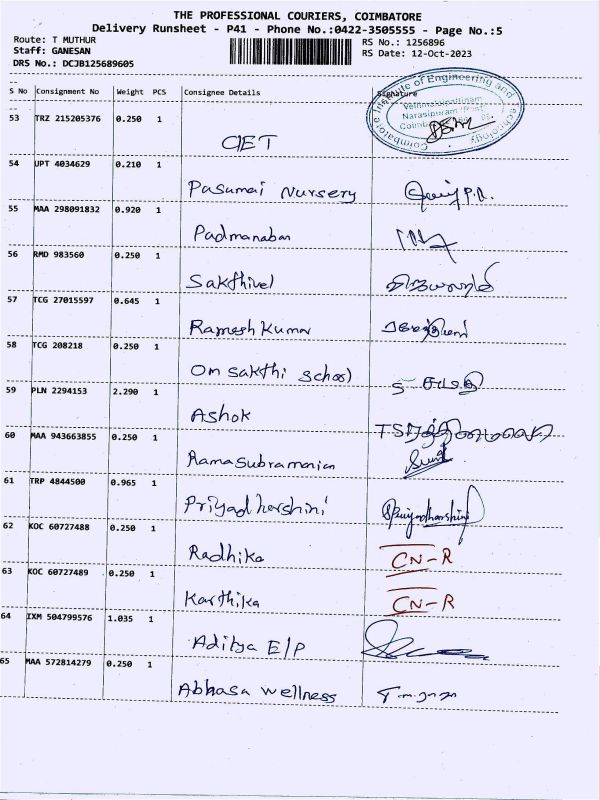 THE PROFESSIONAL COURIERS, COIMBATORE
Delivery Runsheet - P41 - Phone No.:0422-3505555 - Page No.:5
Route: T MUTHUR
RS No.: 1256896
Staff: GANESAN
RS Date: 12-Oct-2023
DRS No.: DCJB125689605
S No Consignment No Weight PCS Consignee Details Signature
Coimbatore Institute of Engineering and Technology
Vellimalaipattinam
Narasipuram Post
53 TRZ 215205376 0.250 1
CIET
54 UPT 4034629 0.210 1
Pasumai Nursery
55 MAA 298091832 0.920 1
Padmanaban
56 RMD 983560 0.250 1
Sakthivel
57 TCG 27015597 0.645 1
Ramesh Kumar
58 TCG 208218 0.250 1
Om sakthi school
59 PLN 2294153 2.290 1
Ashok
60 MAA 943663855 0.250 1
Ramasubramanian
61 TRP 4844500 0.965 1
Priyadharshini Priyadharshini
62 KOC 60727488 0.250 1
Radhika CN-R
63 KOC 60727489 0.250 1
Karthika CN-R
64 IXM 504799576 1.035 1
Aditya E/P
65 MAA 572814279 0.250 1
Abhasa wellness